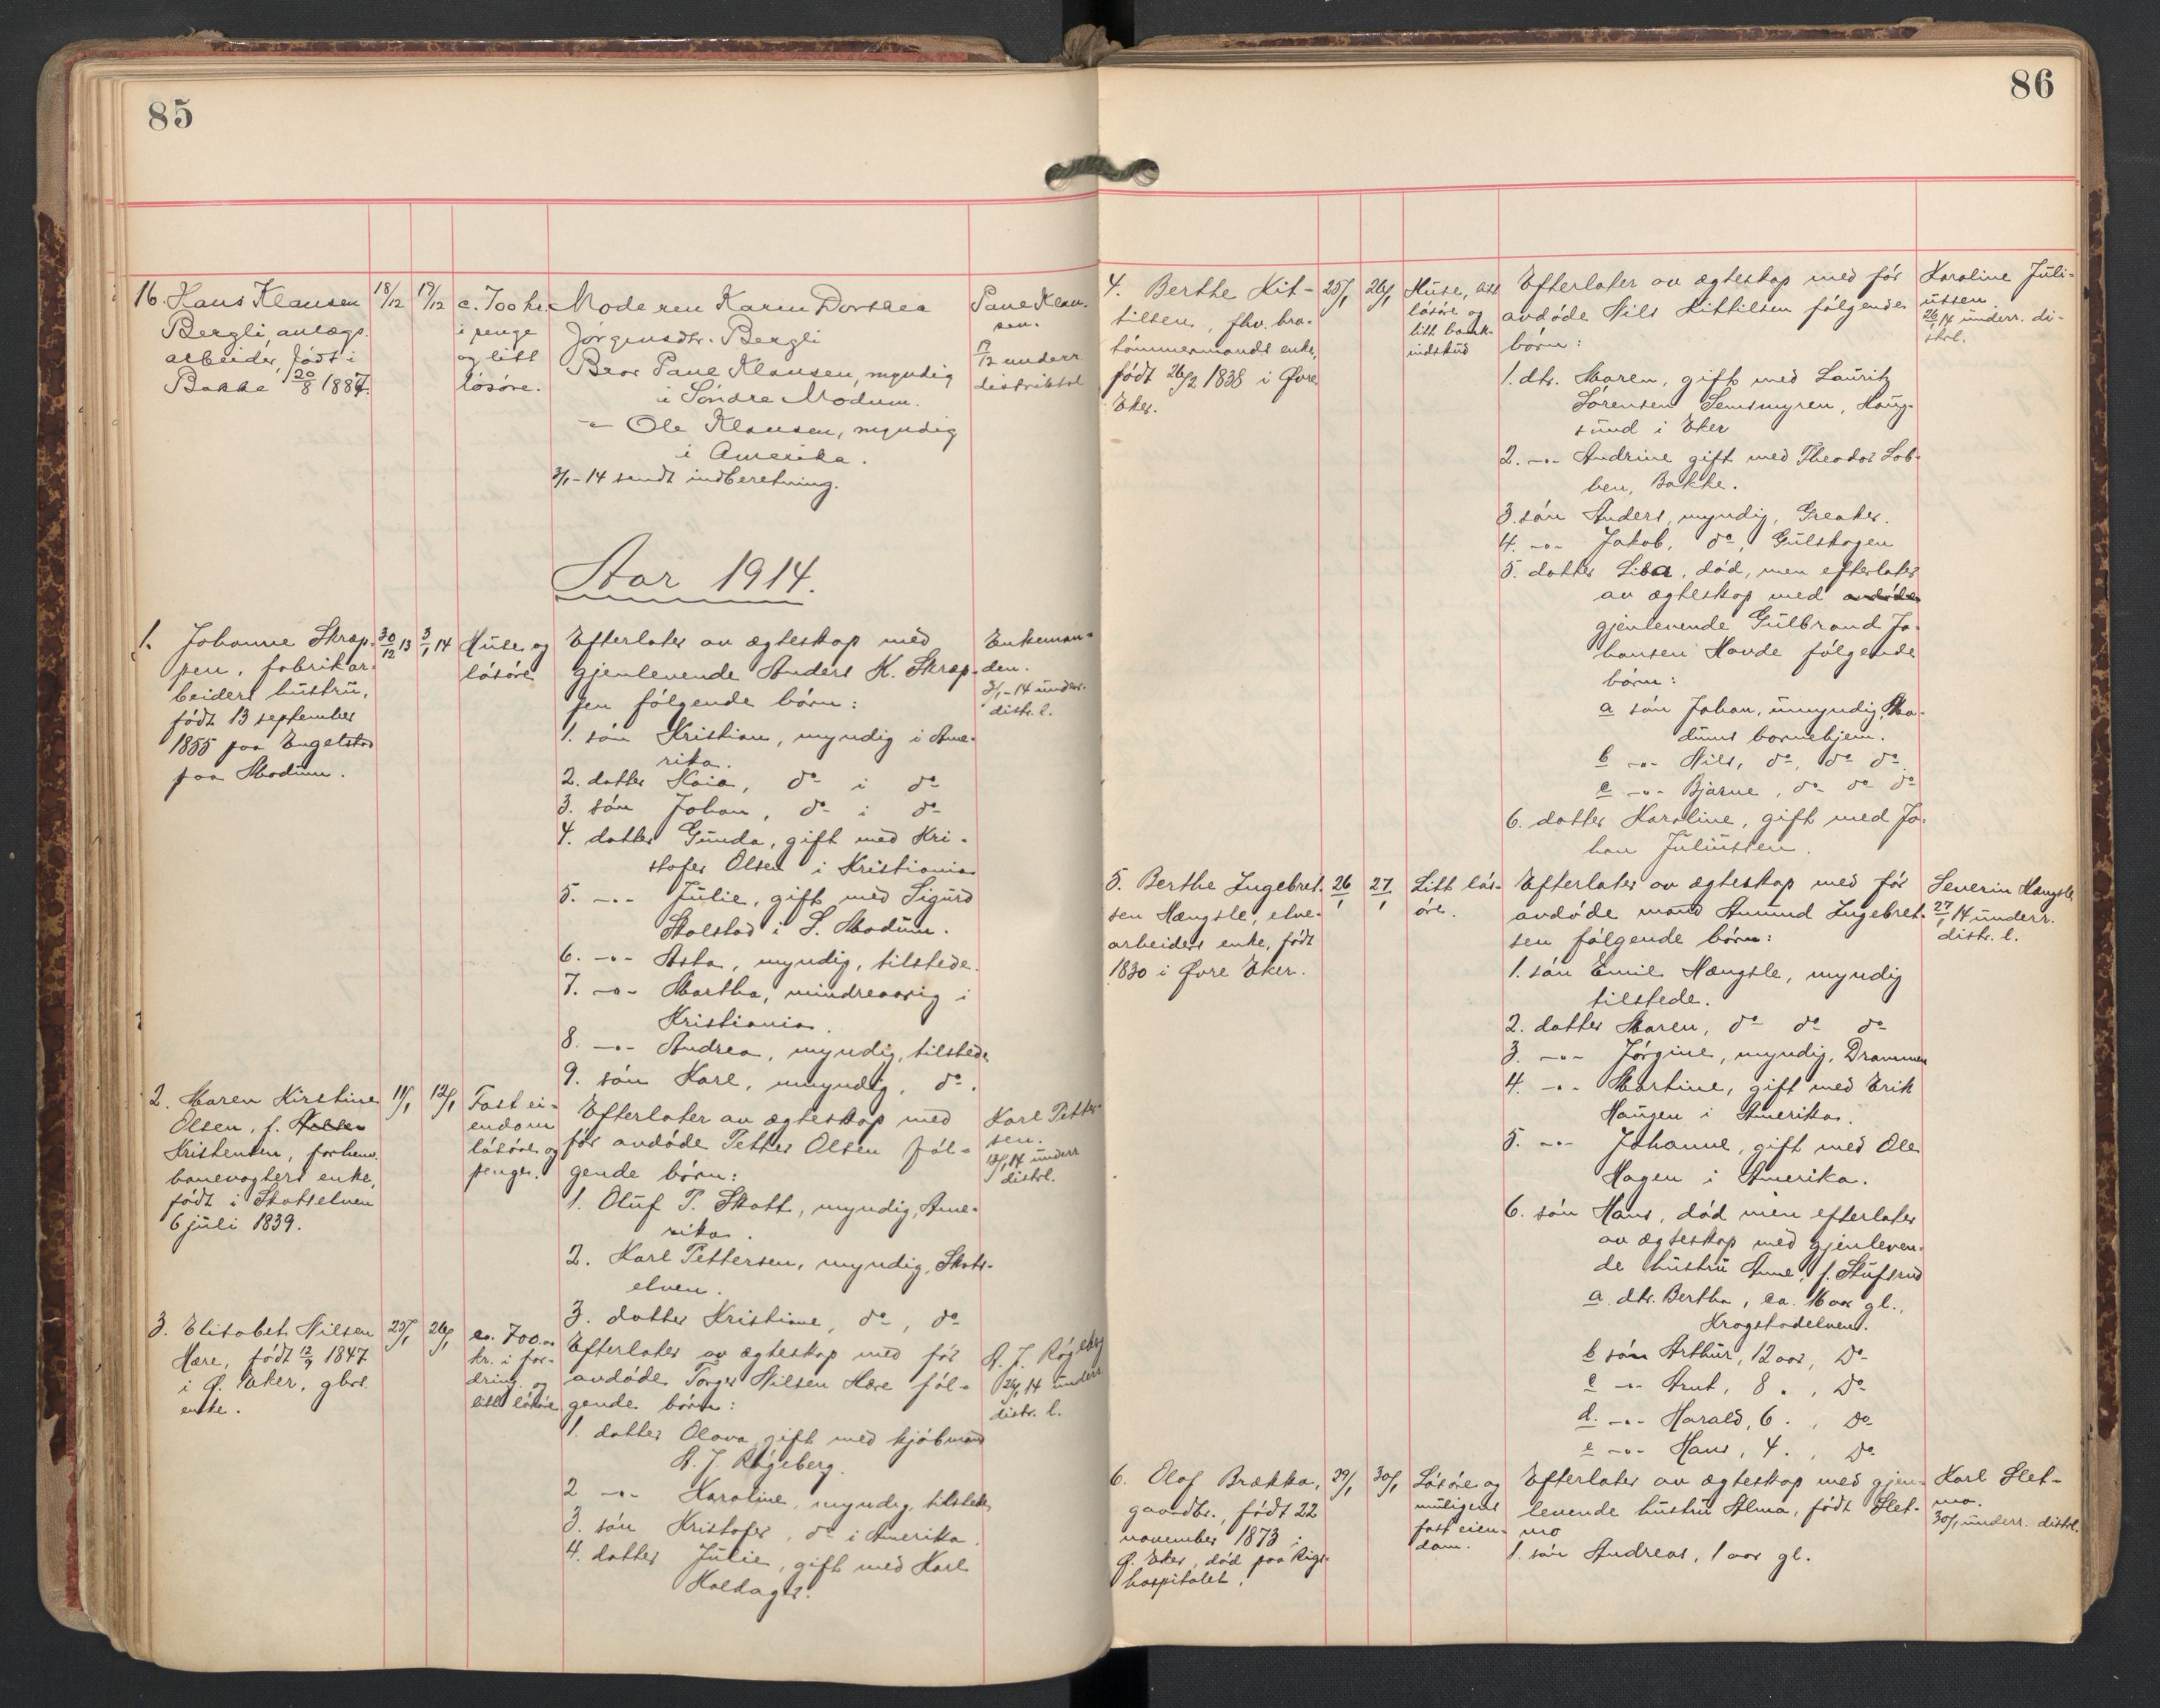 85
16. Hans Klausen
Bergli, anlægs-
arbeider, født i
Bakke 20/8 1887.
18/12
19/12
c. 700 kr.
i penge
og litt
løsøre.
Moderen Karen Dorthea
Jørgensdtr. Bergli
Bror Paul Klausen, myndig
i Søndre Modum.
-"- Ole Klausen, myndig
i Amerika.
3/1-14 sendt indberetning.
Paul Klau-
sen.
19/12 underr.
distriktsl.
Aar 1914.
1. Johanne Skrep-
pen, fabrikar-
beiders hustru,
født 13 september
1855 paa Engelstad
paa Modum.
30/12 13
3/1 14
Huse og
løsøre
Efterlater av ægteskap med
gjenlevende Anders K. Skrep-
pen følgende børn:
1. søn Kristian, myndig i Ame-
rika.
2. datter Kaia, do i do
3. søn Johan, do i do
4. datter Gunda, gift med Kri-
stofer Olsen i Kristiania
5. -"- Julie, gift med Sigurd
Stolstad i S. Modum.
6. -"- Asta, myndig, tilstede.
7. -"- Martha, mindreaarig i
Kristiania.
8. -"- Andrea, myndig, tilstede
9. søn Karl, umyndig, do.
Enkeman-
den.
3/1-14 underr.
distr. l.
2. Maren Kirstine
Olsen, f.
Kristensen, forhenv.
banevogters enke,
født i Skotselven
6 juli 1839.
11/1
12/1
Fast ei-
endom
løsøre og
penge.
Efterlater av ægteskap med
før avdøde Petter Olsen føl-
gende børn:
1. Oluf P. Skott, myndig, Ame-
rika.
2. Karl Pettersen, myndig, Skots-
elven.
3. datter Kristiane, do, do
Karl Petter-
sen.
12/1 14 underr
distrl.
3. Elisabet Nilsen
Hære, født 12/9 1847
i Ø. Eker, gbrs.
enke.
25/1
26/1
ca. 700.00
kr. i for-
dring og
litt løsøre
Efterlater av ægteskap med før
avdøde Torger Nilsen Hære føl-
gende børn:
1. datter Olava, gift med kjøbmand
A. J. Røgeberg.
2 -"- Karoline, myndig, tilstede
3. søn Kristofer, do i Amerika.
4. datter Julie, gift med Karl
Kaldager.
A. J. Røgeberg
26/1 14 underr
distr. l.
86
4. Berthe Kit-
tilsen, fhv. bro-
tømmermands enke,
født 26/2 1838 i Øvre
Eker.
25/1
26/1
Huse,
løsøre og
litt bank-
indskud
Efterlater av ægteskap med før
avdøde Nils Kittilsen følgende
børn:
1. dtr. Maren, gift med Lauritz
Sørensen Semsmyren, Houg-
sund i Eker
2. -"- Andrine gift med Theodor Lob-
ben, Bakke.
3. søn Anders, myndig, Greaker.
4. -"- Jakob, do, Gulskogen
5. datter Lisa, død, men efterlater
av ægteskap med avdøde
gjenlevende Gulbrand Jo-
hansen Hovde følgende
børn:
a søn Johan, umyndig, Mo-
dums barnehjem.
b -"- Nils, do, do do
c -"- Bjarne, do do do
6. datter Karoline, gift med Jo-
han Juliussen.
Karoline Juli-
ussen
26/1 14 underr. di-
strl.
5. Berthe Ingebret-
sen Hængsle, elve-
arbeiders enke, født
1830 i Øvre Eker.
26/1
27/1
Litt løs-
øre.
Efterlater av ægteskap med før
avdøde mand Amund Ingebret-
sen følgende børn:
1. søn Emil Hængsle, myndig
tilstede.
2. datter Maren, do do do
3. -"- Jørgine, myndig, Drammen
4. -"- Martine, gift med Erik
Haugen i Amerika.
5. -"- Johanne, gift med Ole
Hagen i Amerika.
6. søn Hans, død men efterlater
av ægteskap med gjenleven-
de hustru Anne, f. Stufsrud
a. dtr. Bertha, ca. 16 aar gl.,
Krogstadelven.
b søn Arthur, 12 aar, Do
c -"- Arnt, 8 ", Do
d. -"- Harald, 6 ", Do
e -"- Hans, 4 ", Do
Severin Hængsle
27/1 14 underr.
distr. l.
6. Olaf Brækka,
gaardbr., født 22
november 1873 i
Ø. Eker, død paa Rigs-
hospitalet.
29/1
30/1
Løsøre og
muligens
fast eien-
dom.
Efterlater av ægteskap med gjen-
levende hustru Alma, født Slet-
mo
1. søn Andreas, 1 aar gl.
Karl Slet-
mo.
30/1 underr. distrl.